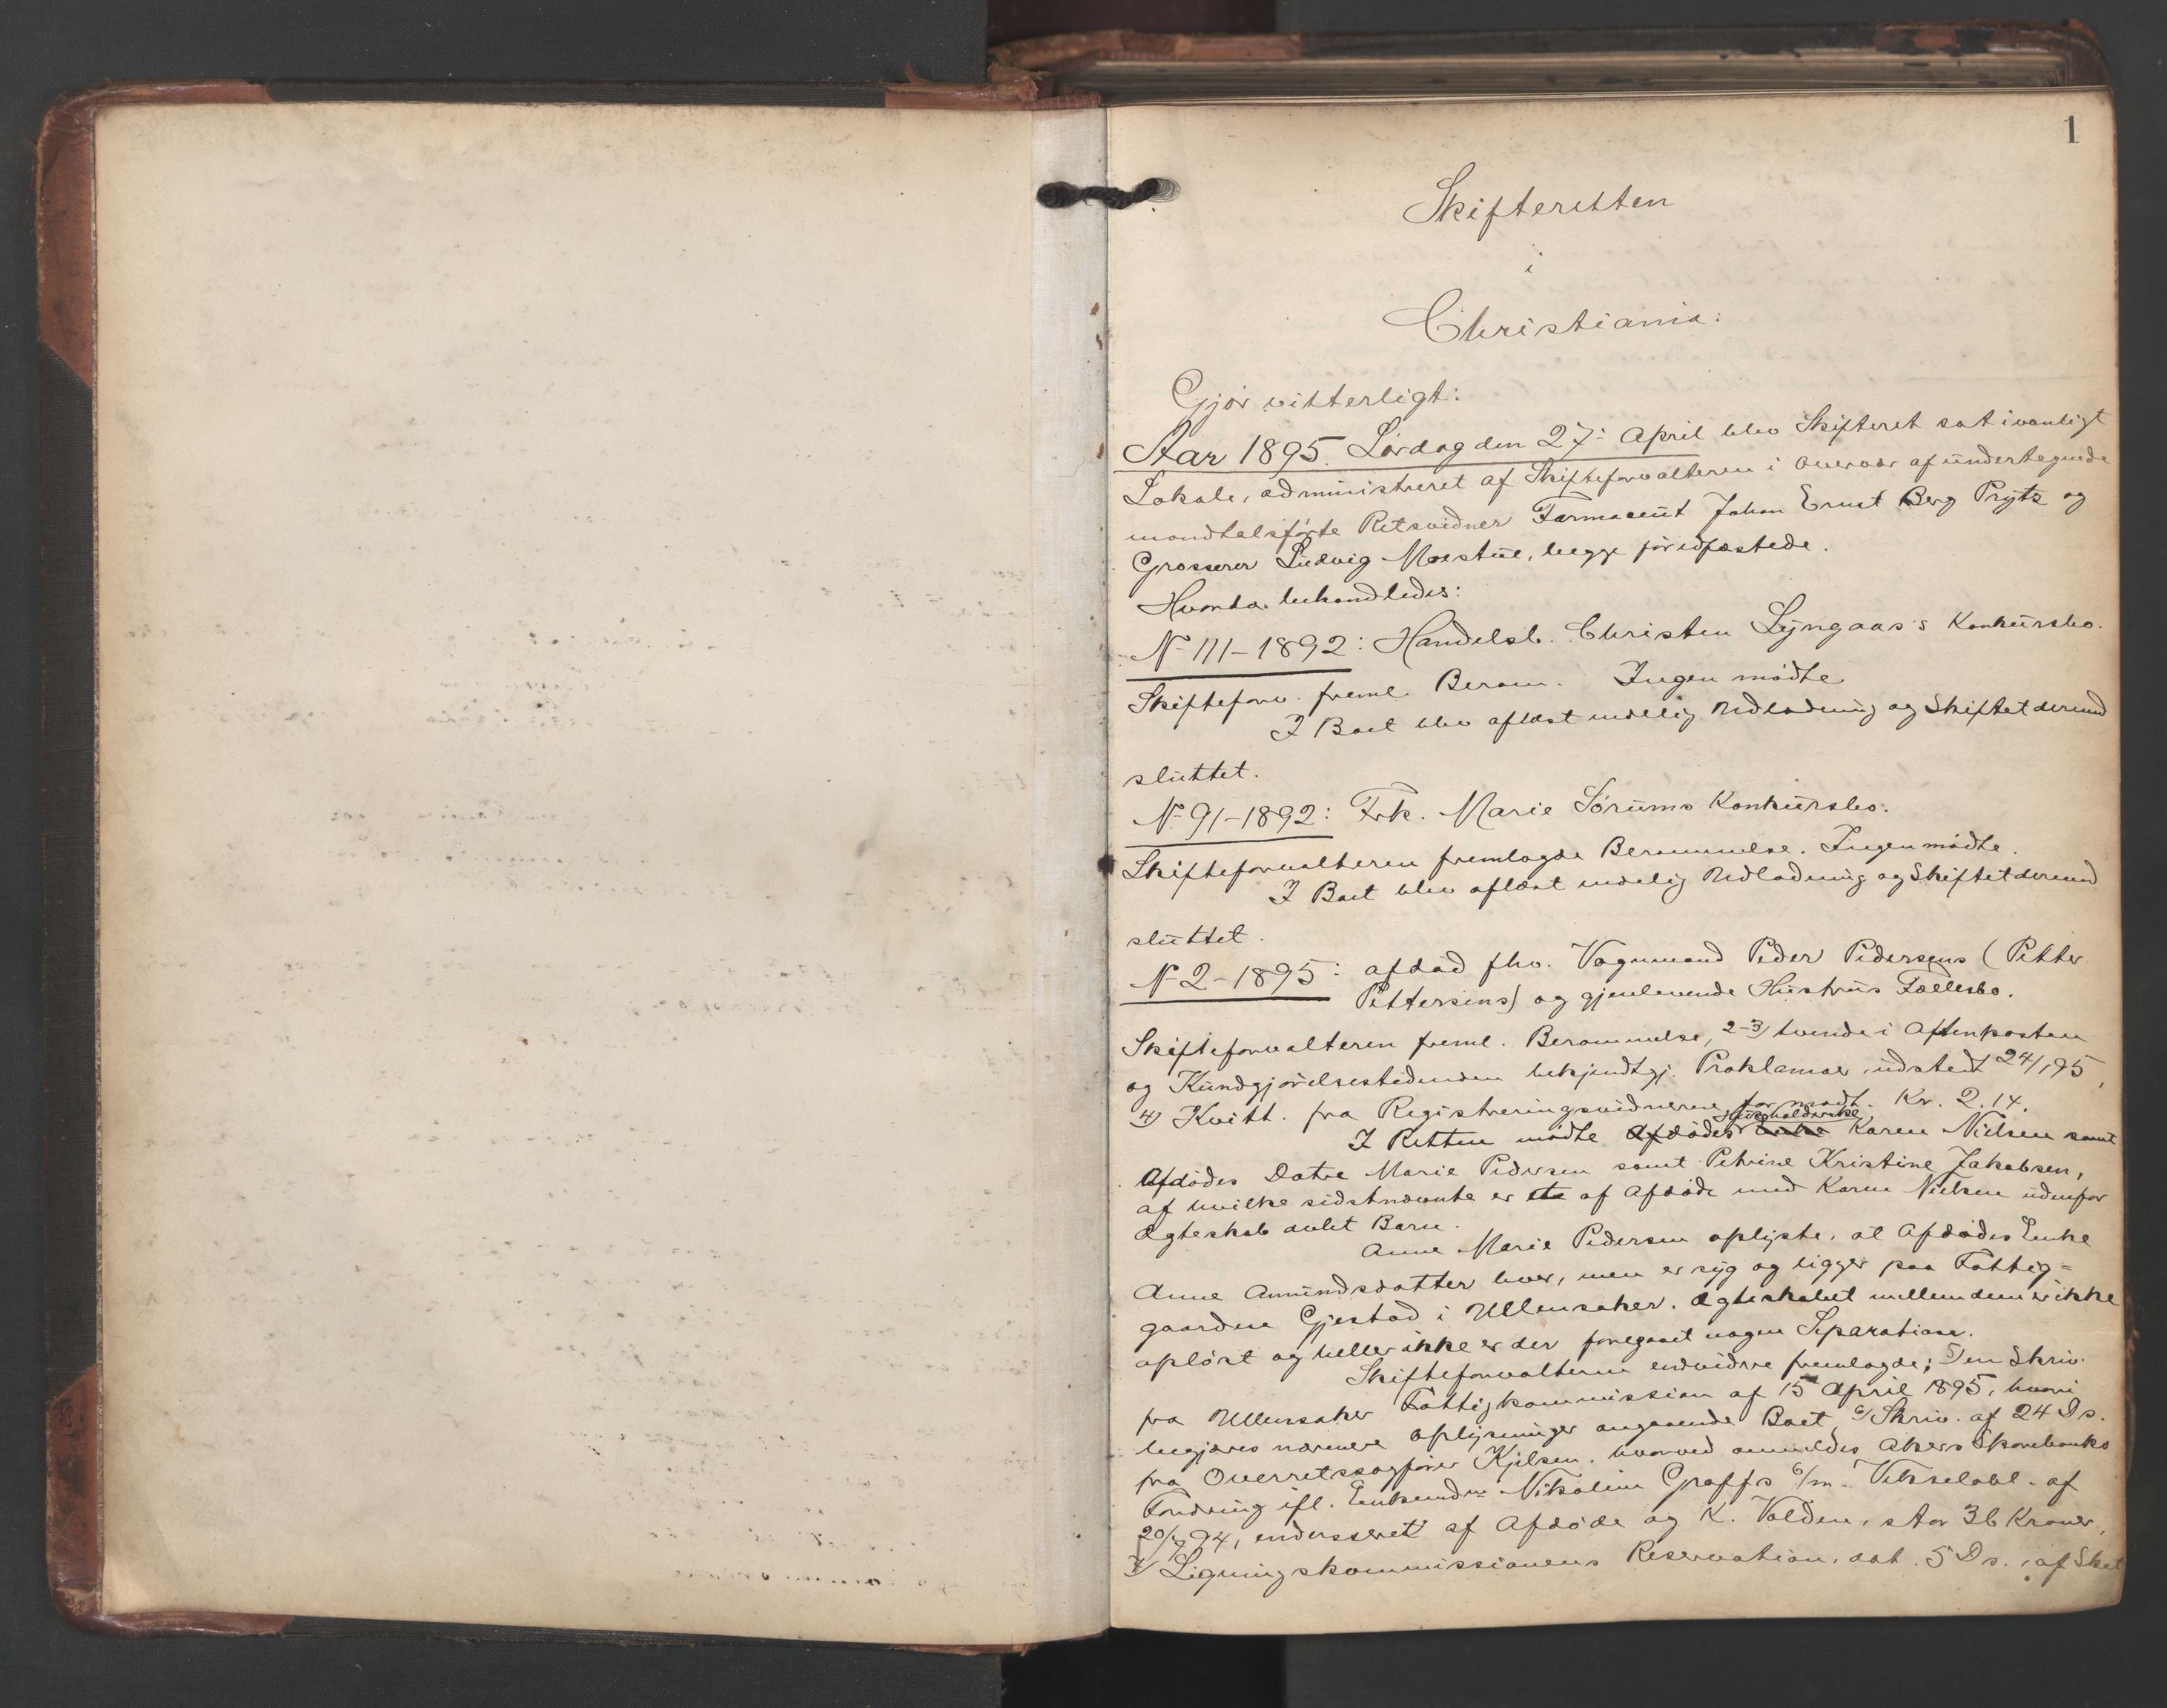 1
Skifteretten
i
Christiania:
Gjør vitterligt:
Aar 1895. Lørdag den 27: April blev Skifteret sat i vanligt
Lokale, administreret af Skifteforvalteren i Overvær af undertegnede
mandtalsførte Retsvidner Farmaceut Johan Ernst Berg Prytz og
Grosserer Ludvig Moestue, begge før edfæstede.
Hvorda behandledes:
N 111-1892: Handelsb. Christen Lyngaas's Konkursbo.
Skifteforv. freml. Beram. Ingen mødte
I Boet blev aflæst endelig Udlodning og Skiftet dermed
sluttet.
N. 91-1892: Frk. Marie Sørums Konkursbo.
Skifteforvalteren fremlagde Berammelse. Ingen mødte.
I Boet blev aflæst endelig Udlodning og Skiftet dermed
sluttet.
N 2-1895: afdød fhv. Vognmand Peder Pedersens (Petter
Pettersens) og gjenlevende Hustrus Fællesbo.
Skifteforvalteren freml. Berammelse, 2-3) tvende i Aftenposten
og Kundgjørelsestidenden bekjendtgj. Proklamaer, udstedt 24/1 95,
4) Kvitt. fra Registreringsvidnerne for modt. Kr. 2.14.
I Retten mødte Afdødes Husholderske Karen Nielsen samt
Afdødes Datre Marie Pedersen samt Petrine Kristine Jakobsen,
af hvilke sidstnævnte er et af Afdøde med Karen Nielsen udenfor
Ægteskab avlet Barn.
Anne Marie Pedersen oplyste, at Afdødes Enke
Anne Amundsdatter lever, men er syg og ligger paa Fattig=
gaarden Gjestad i Ullensaker. Ægteskabet mellem dem er ikke
opløst og heller ikke er der foregaaet nogen Separation.
Skifteforvalteren endvidere fremlagde: 5) en Skriv.
fra Ullensaker Fattigkommission af 15 April 1895, hvori
begjæres nærmere Oplysninger angaaende Boet, 6) Skriv. af 24 Ds.
fra Overretssagfører Kjelsen, hvorved anmeldes Akers Sparebanks
Fordring ifl. Enkemadm Nikoline Graffs 6/m. Vekselobl. af
20/7 94, endosseret af Afdøde og K. Volden, stor 36 Kroner,
7) Ligningskommissionens Reservation, dat. 5 Ds., af Skat